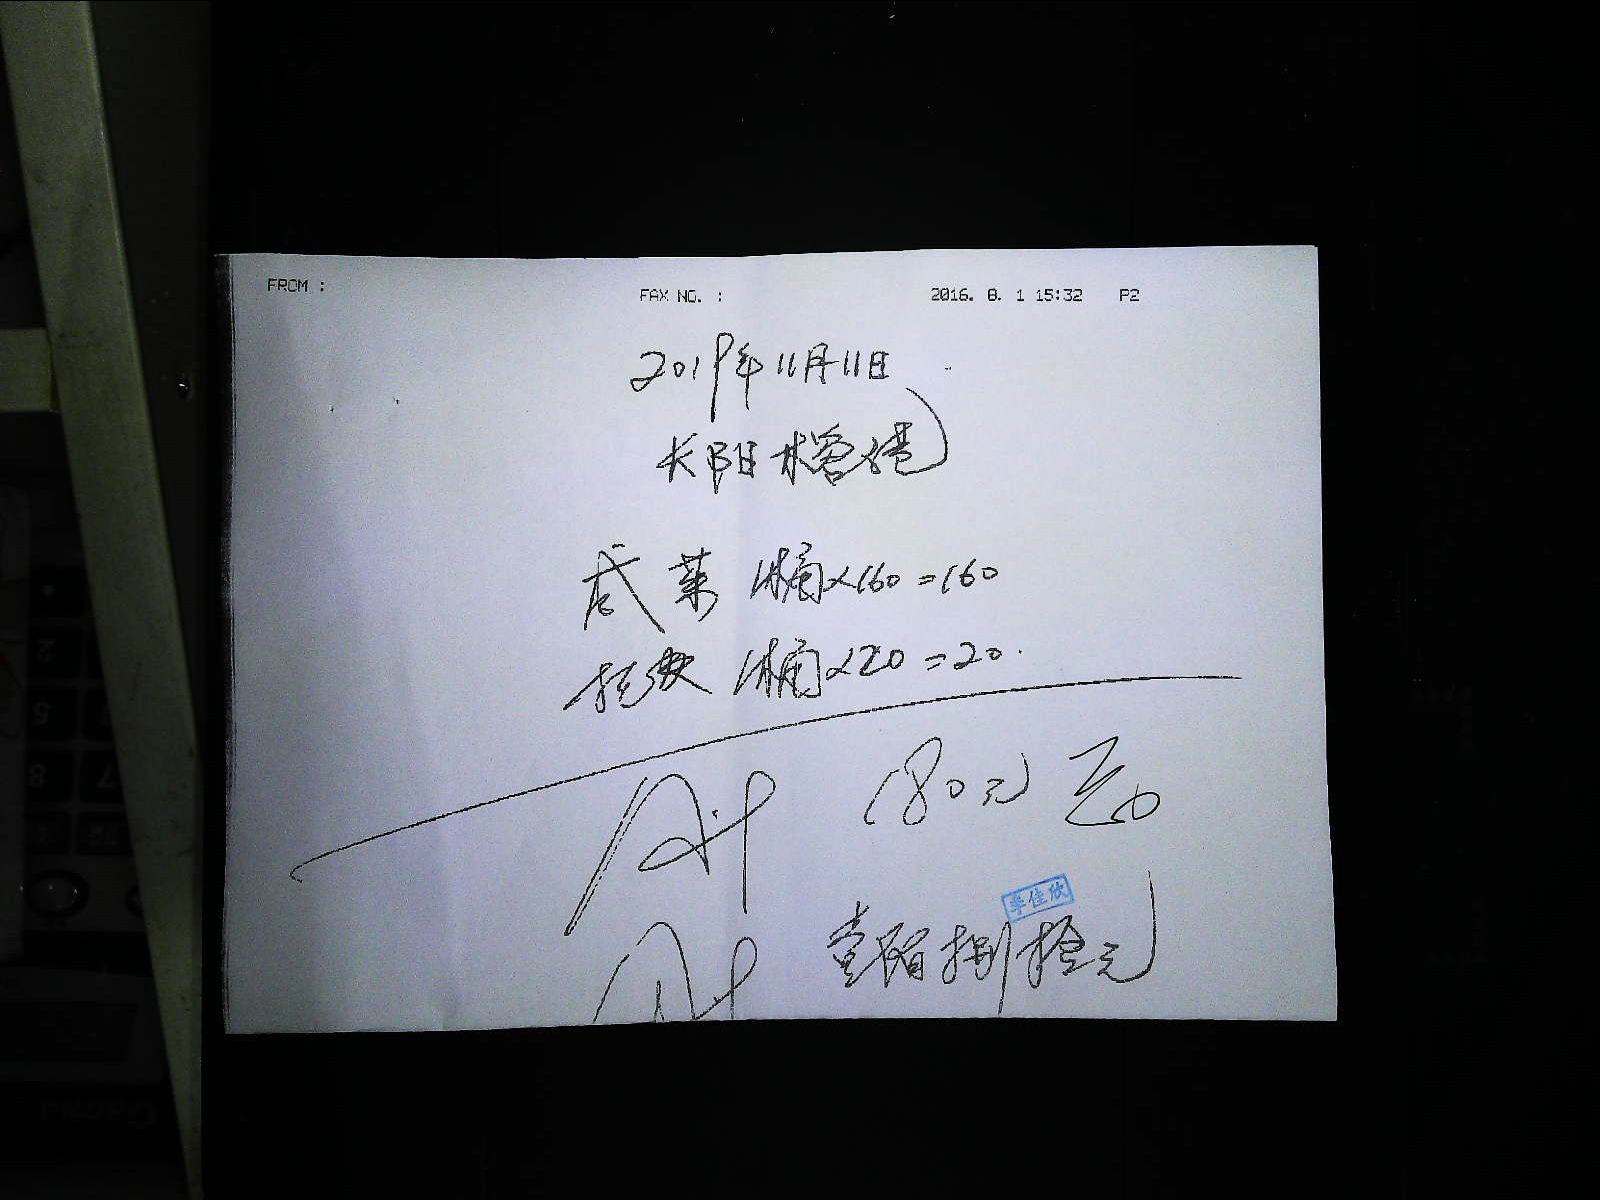 FROM :
FAX NO. :
2016. 8. 1 15:32 P2
2019年11月11日
长阳
咸菜 1桶×160=160
1桶×20=20.
180元
李佳欣
壹佰捌拾元